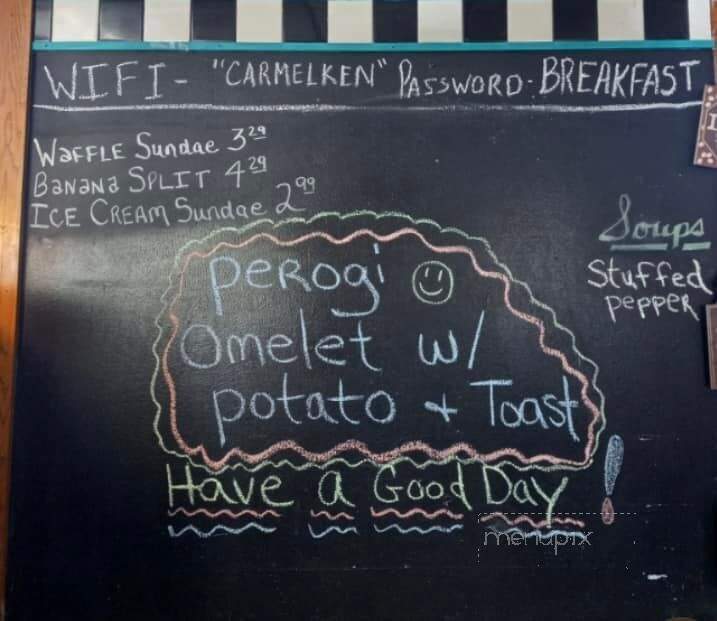 WIFI- "CARMELKEN" PASSWORD- BREAKFAST
WAFFLE Sundae 3 29
BANANA SPLIT 4 29
ICE CREAM Sundae 2 99
Soups
Stuffed
pepper
peRogi
Omelet w/
potato + Toast
Have a Good Day !
menupix